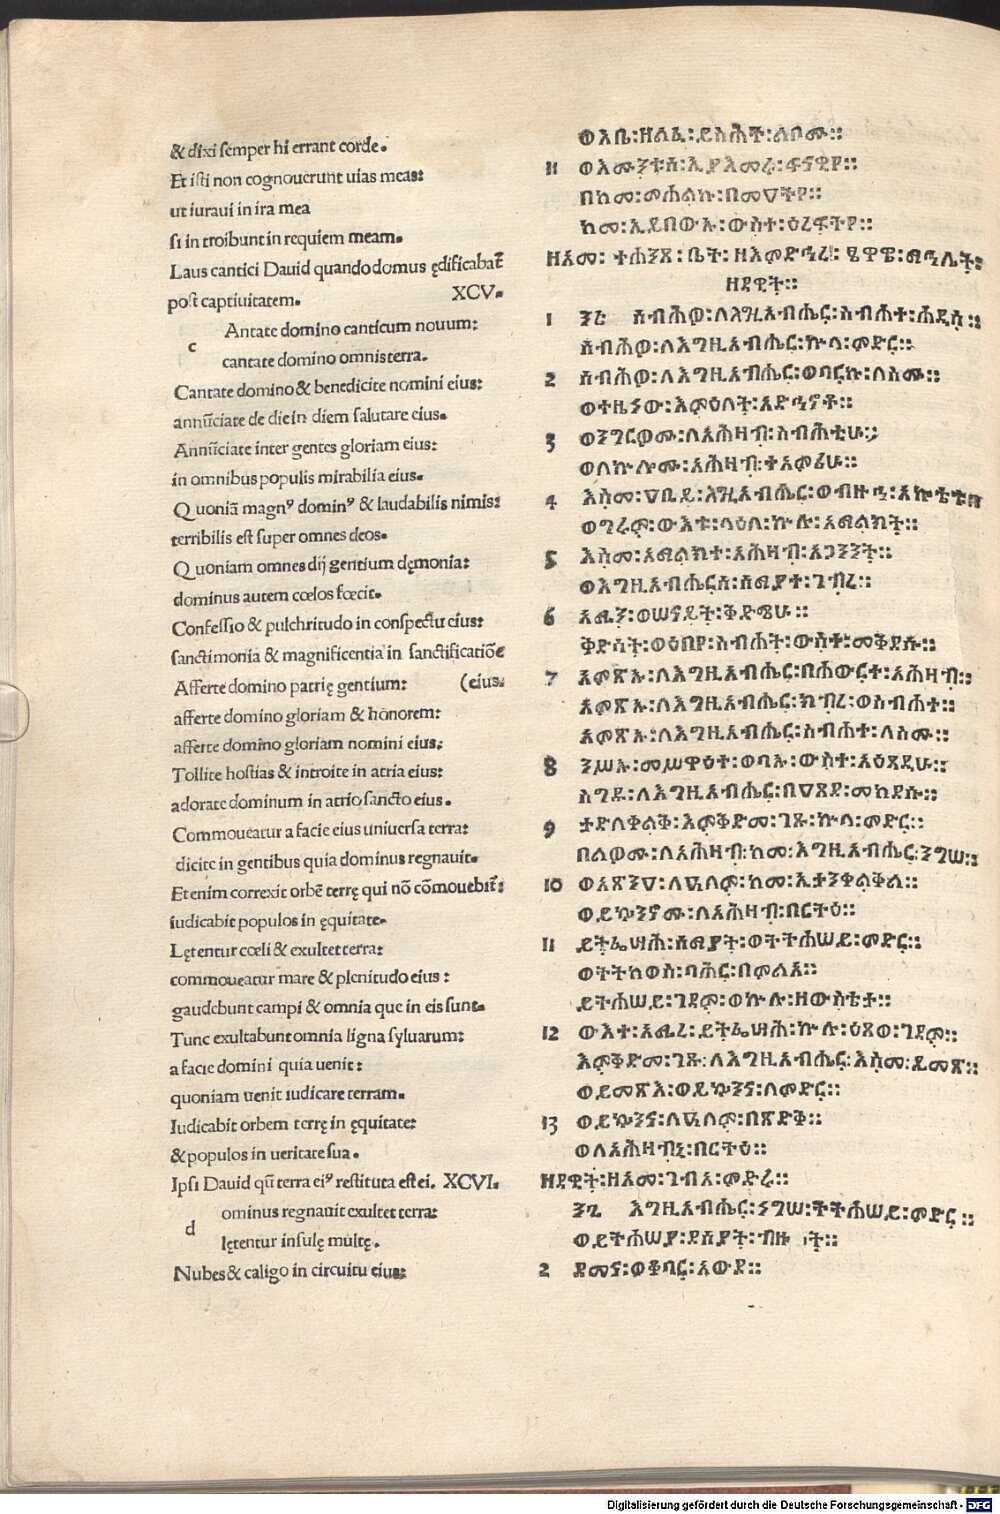 & dixi semper hi errant corde.
Et isti non cognouerunt uias meas:
ut iuraui in ira mea
si in troibunt in requiem meam.
Laus cantici Dauid quando domus ędificabat̄
post captiuitatem. XCV.
Antate domino canticum nouum:
c
cantate domino omnis terra.
Cantate domino & benedicite nomini eius:
annūciate de die in diem salutare eius.
Annūciate inter gentes gloriam eius:
in omnibus populis mirabilia eius.
Quoniā magnꝰ dominꝰ & laudabilis nimis:
terribilis est super omnes deos.
Quoniam omnes dij gentium dęmonia:
dominus autem cœlos fœcit.
Confessio & pulchritudo in conspectu eius:
sanctimonia & magnificentia in sanctificatiōe
Afferte domino patrię gentium: (eius.
afferte domino gloriam & honorem:
afferte domino gloriam nomini eius.
Tollite hostias & introite in atria eius:
adorate dominum in atrio sancto eius.
Commoueatur a facie eius uniuersa terra:
dicite in gentibus quia dominus regnauit.
Etenim correxit orbē terrę qui nō cōmouebit̄:
iudicabit populos in ęquitate.
Lętentur cœli & exultet terra:
commoueatur mare & plenitudo eius:
gaudebunt campi & omnia que in eis sunt.
Tunc exultabunt omnia ligna syluarum:
a facie domini quia uenit:
quoniam uenit iudicare terram.
Iudicabit orbem terrę in ęquitate:
& populos in ueritate sua.
Ipsi Dauid qn̄ terra eiꝰ restituta est ei. XCVI.
ominus regnauit exultet terra:
d
lętentur insulę multę.
Nubes & caligo in circuitu eius:
ወእቤ፡ዘልፈ፡ይስሕት፡ልቦሙ።
11 ወእሙንቱሰ፡ኢያእመሩ፡ፍናዊየ።
በከመ፡መሐልኩ፡በመዓትየ።
ከመ፡ኢይበውኡ፡ውስተ፡ዕረፍትየ።
ዘእመ፡ተሐንጸ፡ቤት፡ዘእምድኅረ፡ፄዋዌ፡ማኅሌት፡
ዘዳዊት።
1 ፺፭ ሰብሕዎ፡ለእግዚአብሔር፡ስብሐተ፡ሐዲሰ።
ሰብሕዎ፡ለእግዚአብሔር፡ኵላ፡ምድር።
2 ሰብሕዎ፡ለእግዚአብሔር፡ወባርኩ፡ለስሙ።
ወተዜነው፡እምዕለት፡አድኅኖቶ።
3 ወንግርዎሙ፡ለአሕዛብ፡ስብሐቲሁ።
ወለኵሎሙ፡አሕዛብ፡ተአምሪሁ።
4 እስመ፡ዓቢይ፡እግዚአብሔር፡ወብዙኅ፡አኰቴቱ።
ወግሩም፡ውእቱ፡ላዕለ፡ኵሉ፡አማልክት።
5 እስመ፡አማልክተ፡አሕዛብ፡አጋንንት።
ወእግዚአብሔርሰ፡ሰማያተ፡ገብረ።
6 አሚን፡ወሠናይት፡ቅድሜሁ።
ቅድሳት፡ወዕበየ፡ስብሐት፡ውስተ፡መቅደሱ።
7 አምጽኡ፡ለእግዚአብሔር፡በሐውርተ፡አሕዛብ።
አምጽኡ፡ለእግዚአብሔር፡ክብረ፡ወስብሐተ።
አምጽኡ፡ለእግዚአብሔር፡ስብሐተ፡ለስሙ።
8 ንሥኡ፡መሥዋዕተ፡ወባኡ፡ውስተ፡አዕጻዲሁ።
ስግዱ፡ለእግዚአብሔር፡በዓጸደ፡መከደሱ።
9 ታድለቀልቅ፡እምቅድመ፡ገጹ፡ኵላ፡ምድር።
በልዎሙ፡ለአሕዛብ፡ከመ፡እግዚአብሔር፡ነግሠ።
10 ወአጽንዓ፡ለዓለም፡ከመ፡ኢታንቀልቅል።
ወይኴንኖሙ፡ለአሕዛብ፡በርትዕ።
11 ይትፌሣሕ፡ሰማያት፡ወትትሐሠይ፡ምድር።
ወትትከወስ፡ባሕር፡በምልአ።
ይትሐሠይ፡ገዳም፡ወኵሉ፡ዘውስቴተ።
12 ውእተ፡አሚረ፡ይትፌሣሕ፡ኵሉ፡ዕፀወ፡ገዳም።
እምቅድመ፡ገጹ፡ለእግዚአብሔር፡እስመ፡ይመጽ።
ወይመጽእ፡ወይኴንና፡ለምድር።
13 ወይኴንና፡ለዓለም፡በጽድቅ።
ወለአሕዛብኒ፡በርትዕ።
ዘዳዊት፡ዘአመ፡ገብአ፡ምድሩ።
፺፮ እግዚአብሔር፡ነግሠ፡ትትሐሠይ፡ምድር።
ወይትሐሠያ፡ደሰያት፡ብዙኃት።
2 ደመና፡ወቆባር፡አውዶ።
Digitalisierung gefördert durch die Deutsche Forschungsgemeinschaft - DFG